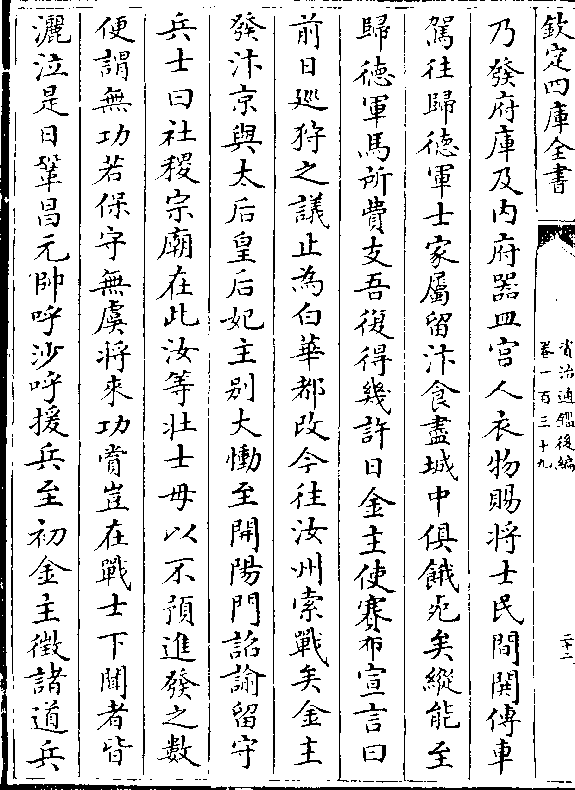 欽定四庫全書
資治通鑑後編
卷一百三十九
二十二
乃發府庫及内府器皿宫人衣物賜將士民間鬨傳車
駕往歸德軍士家屬留汴食盡城中俱餓死矣縱能至
歸德軍馬所費支吾復得幾許日金主使賽布宣言曰
前日巡狩之議止為白華都改今往汝州索戰矣金主
發汴京與太后皇后妃主别大慟至開陽門詔諭留守
兵士曰社稷宗廟在此汝等壯士毋以不預進發之數
便謂無功若保守無虞將來功賞豈在戰士下聞者皆
灑泣是日鞏昌元帥呼沙呼援兵至初金主徵諸道兵